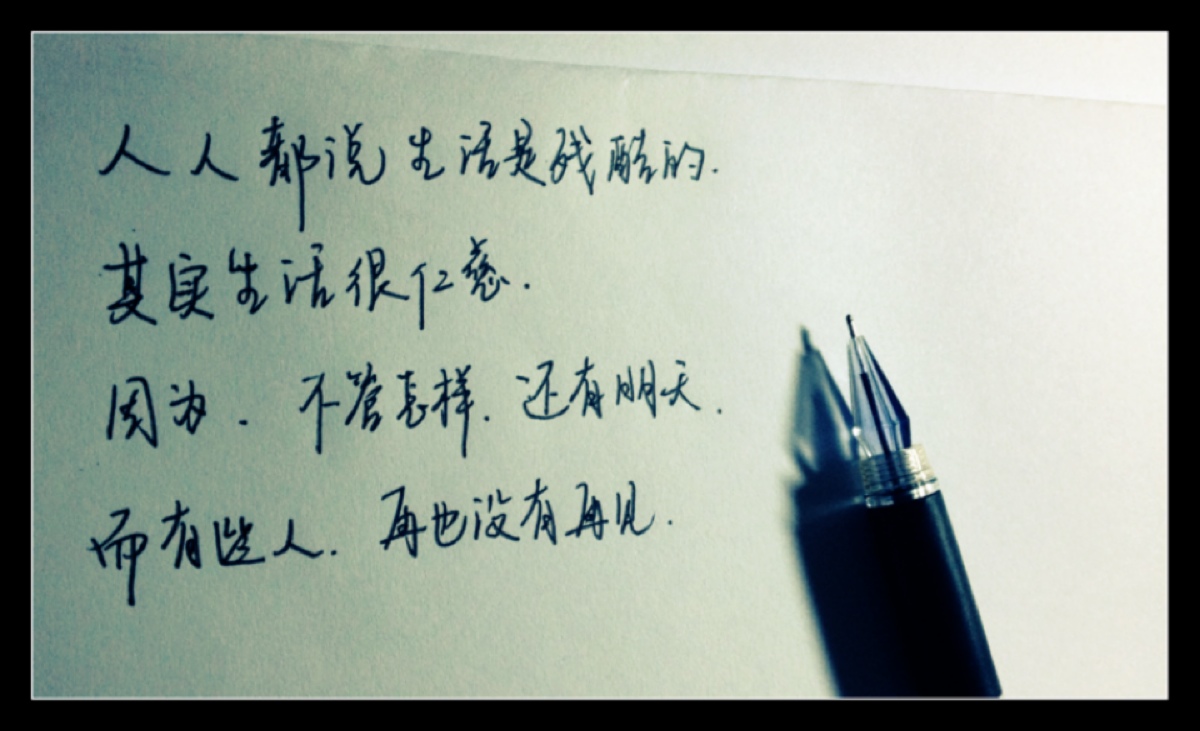 人人都说生活是残酷的.
其实生活很仁慈.
因为.不管怎样.还有明天.
而有些人.再也没有再见.